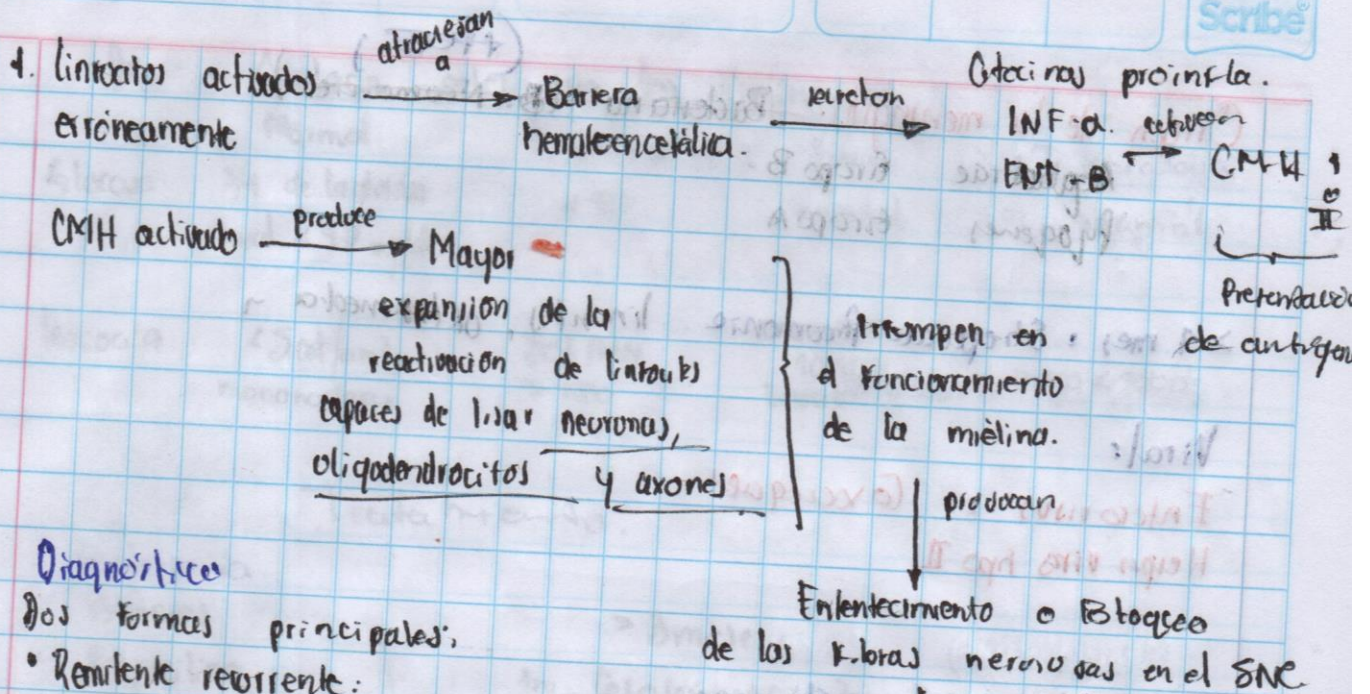 Scribe
1. linfocitos activados
erróneamente
atraviesan
a
Barrera
hematoencefálica.
secretan
Citocinas proinfla.
INF-α.
INF-B
activan
CMH 1
o
II
Presentación
de antígeno
CMH activado
produce
Mayor
expansión de la
reactivación de linfocitos
capaces de lisar neuronas,
oligodendrocitos y axones
Irrumpen en
el funcionamiento
de la mielina.
provocan
Enlentecimiento o Bloqueo
de las fibras nerviosas en el SNC
Diagnóstico
Dos formas principales:
• Remitente recurrente: